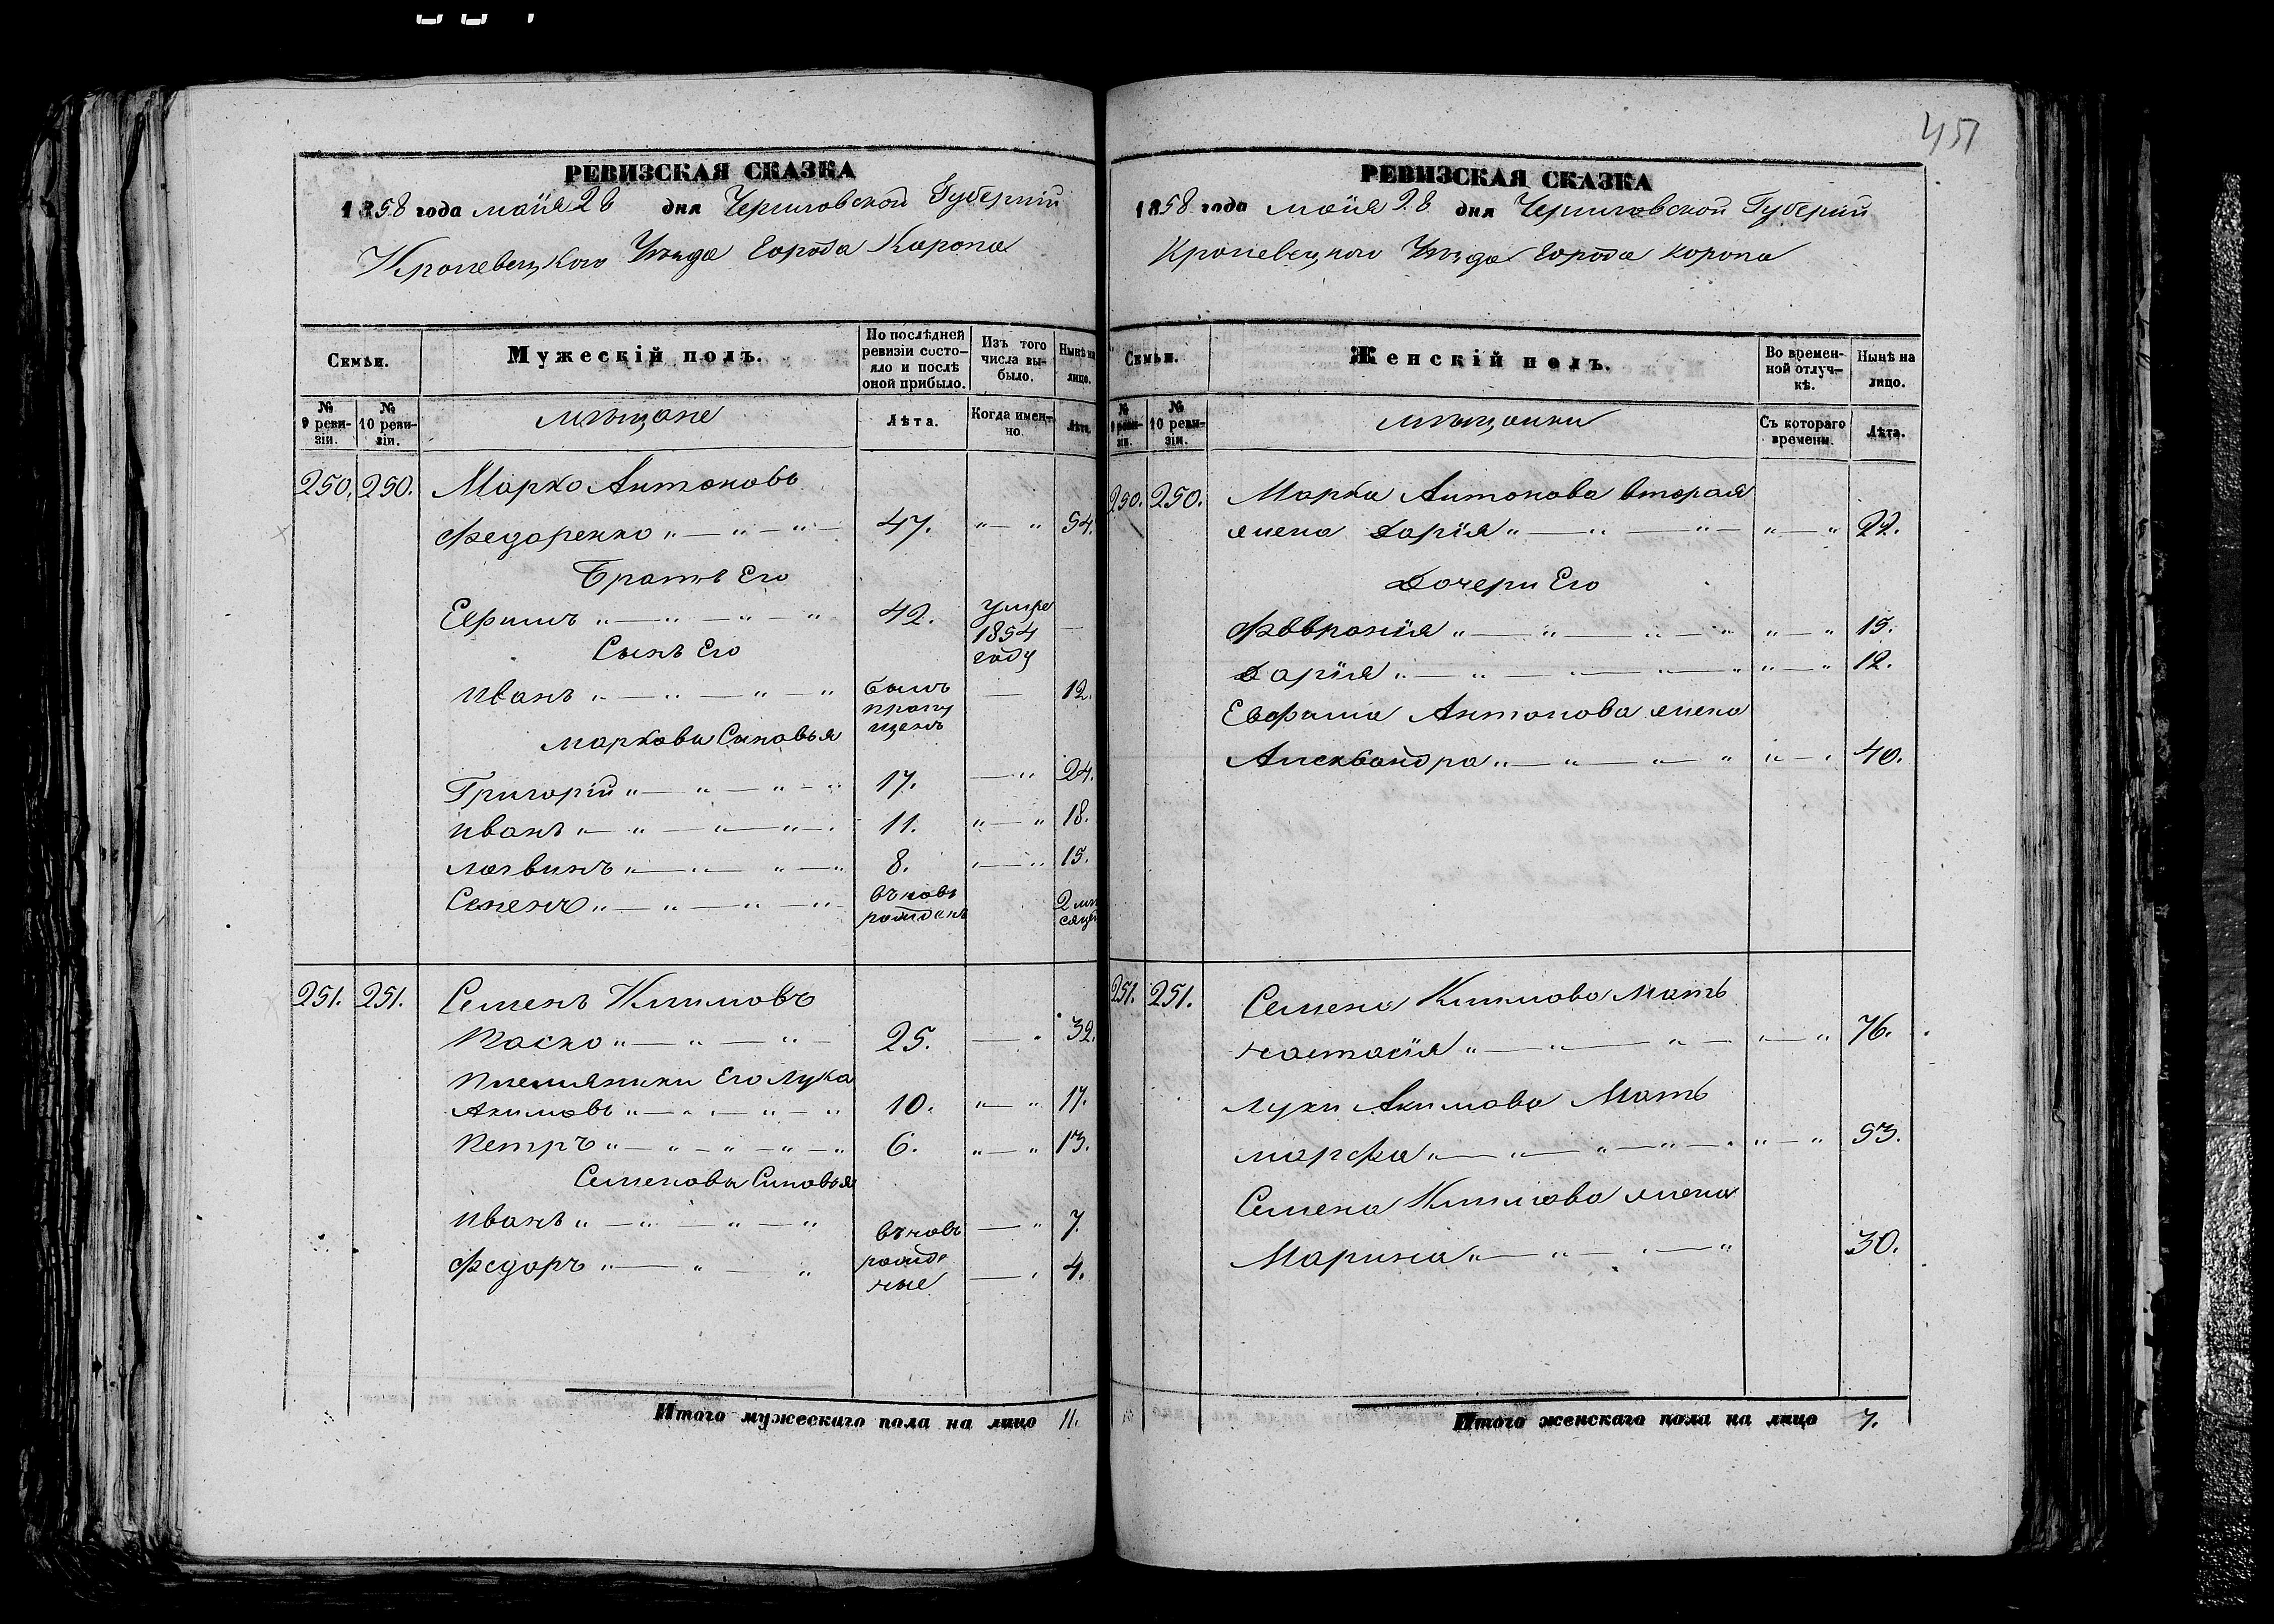 451
РЕВИЗСКАЯ СКАЗКА
1858 года маия 28 дня Черниговской Губерніи
Кролевецкого Уѣзда Города Каропа
Семьи.
Мужескій полъ.
По послѣдней ревизіи состояло и послѣ оной прибыло.
Изъ того числа выбыло.
Нынѣ на лицо.
№ 9 ревизіи.
№ 10 ревизіи.
мѣщане
Лѣта.
Когда именно.
Лѣта.
250. 250. Марко Антоновъ
Федоренко 47. 54.
Братъ Его
Ефимъ 42. умре 1854 году
Сынъ Его
Иванъ былъ пропущенъ 12.
Маркови Синовья
Григорій 17. 24.
Иванъ 11. 18.
Логвинъ 8. 15.
Семенъ въновь рожденъ 2 мѣсяцей
251. 251. Семенъ Климовъ
Паско 25. 32.
Племяники Его Лука
Акимовъ 10. 17.
Петръ 6. 13.
Семенови Синовья
Иванъ 7.
въновь рожденые
Федоръ 4.
Итого мужескаго пола на лицо 11.
РЕВИЗСКАЯ СКАЗКА
1858 года маия 28 дня Черниговской Губерніи
Кролевецкого Уѣзда Города Коропа
Семьи.
Женскій полъ.
Во временной отлучкѣ.
Нынѣ на лицо.
№ 9 ревизіи.
№ 10 ревизіи.
мѣщанки
Съ котораго времени.
Лѣта.
250. 250. Марка Антонова вторая
жена Дарія 22.
Дочери Его
Феврония 15.
Дарія 12.
Евфима Антонова жена
Александра 40.
251. 251. Семена Климова Мать
Настасія 76.
Луки Акимова Мать
Марфа 53.
Семена Климова жена
Марина 30.
Итого женскаго пола на лицо 7.